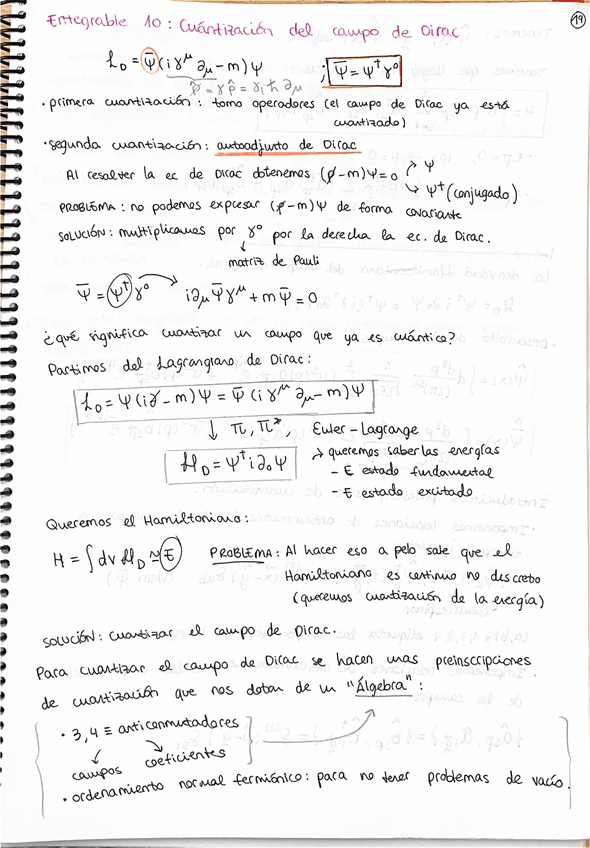 19
Entregable 10: Cuantización del campo de Dirac
ℒ_D = Ψ̄(iγ^μ ∂_μ - m)Ψ ; Ψ̄ = Ψ†γ⁰
p̸ = γp̂ = γiħ∂_μ
· primera cuantización: tomo operadores (el campo de Dirac ya está
cuantizado)
· segunda cuantización: autoadjunto de Dirac
Al resolver la ec de Dirac obtenemos (p̸-m)Ψ=0 ↗ Ψ
↘ Ψ† (conjugado)
PROBLEMA: no podemos expresar (p̸-m)Ψ de forma covariante
SOLUCIÓN: multiplicamos por γ⁰ por la derecha la ec. de Dirac.
↓
matriz de Pauli
Ψ̄ = Ψ†γ⁰ → i∂_μΨ̄γ^μ + mΨ̄ = 0
¿qué significa cuantizar un campo que ya es cuántico?
Partimos del Lagrangiano de Dirac:
ℒ_D = Ψ(i∂̸ - m)Ψ = Ψ̄(iγ^μ ∂_μ - m)Ψ
↓ π, π*, Euler-Lagrange
ℋ_D = Ψ†i∂₀Ψ → queremos saber las energías
- E estado fundamental
- E estado excitado
Queremos el Hamiltoniano:
H = ∫dv ℋ_D ≈ E PROBLEMA: Al hacer eso a pelo sale que el
Hamiltoniano es continuo no discreto
(queremos cuantización de la energía)
SOLUCIÓN: cuantizar el campo de Dirac.
Para cuantizar el campo de Dirac se hacen unas preinscripciones
de cuantización que nos dotan de un "Álgebra":
· 3,4 ≡ anticonmutadores
campos coeficientes
· ordenamiento normal fermiónico: para no tener problemas de vacío.